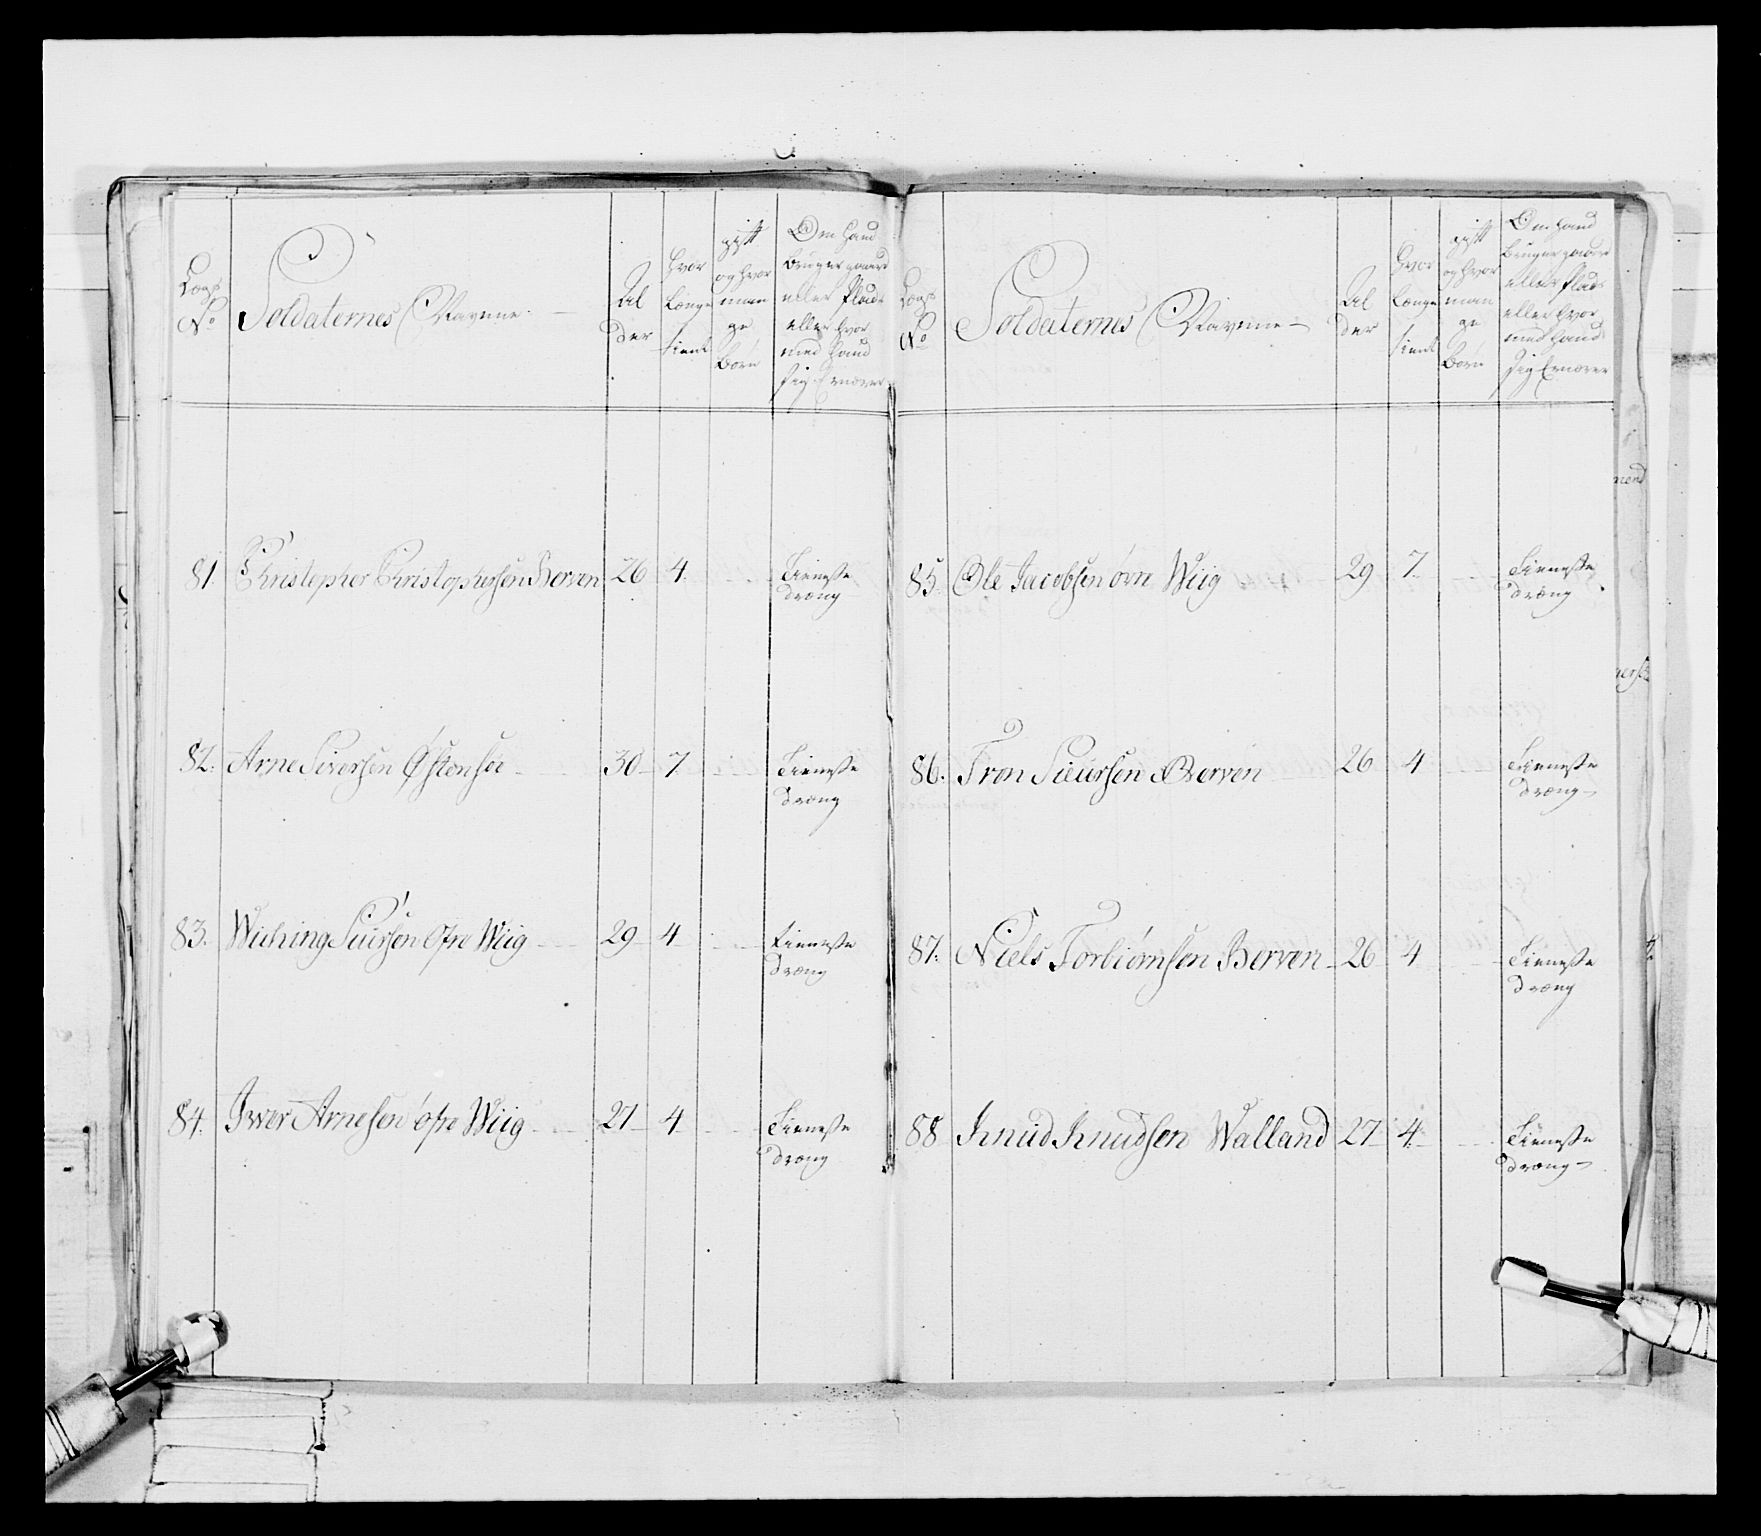 Lægs No
Soldaternes Navne
Alder
hvor længe tient
gift og hvor mange børn
Om hand bruger gaard eller Plads eller hvor med hand sig Ernærer
81. Christopher Christophersen Berven 26 4 Tieneste dræng
82. Arne Siversen Østensøe 30 7 Tieneste dræng
83. Wiching Siursen Øfre Wiig 29 4 tieneste dræng
84. Iver Arnesen øfre Wiig 27 4 Tieneste dræng
Lægs No
Soldaternes Navne
Alder
hvor længe tient
gift og hvor mange børn
Om hand bruger gaard eller Plads eller hvor med hand sig Ernærer
85. Ole Jacobsen øvre Wiig 29 7. Tieneste dræng
86. Tron Siursen Berven 26 4 Tieneste dræng
87. Niels Torbiørnsen Berven 26 4 Tieneste dræng
88 Knud Knudsen Walland 27 4. Tieneste dræng